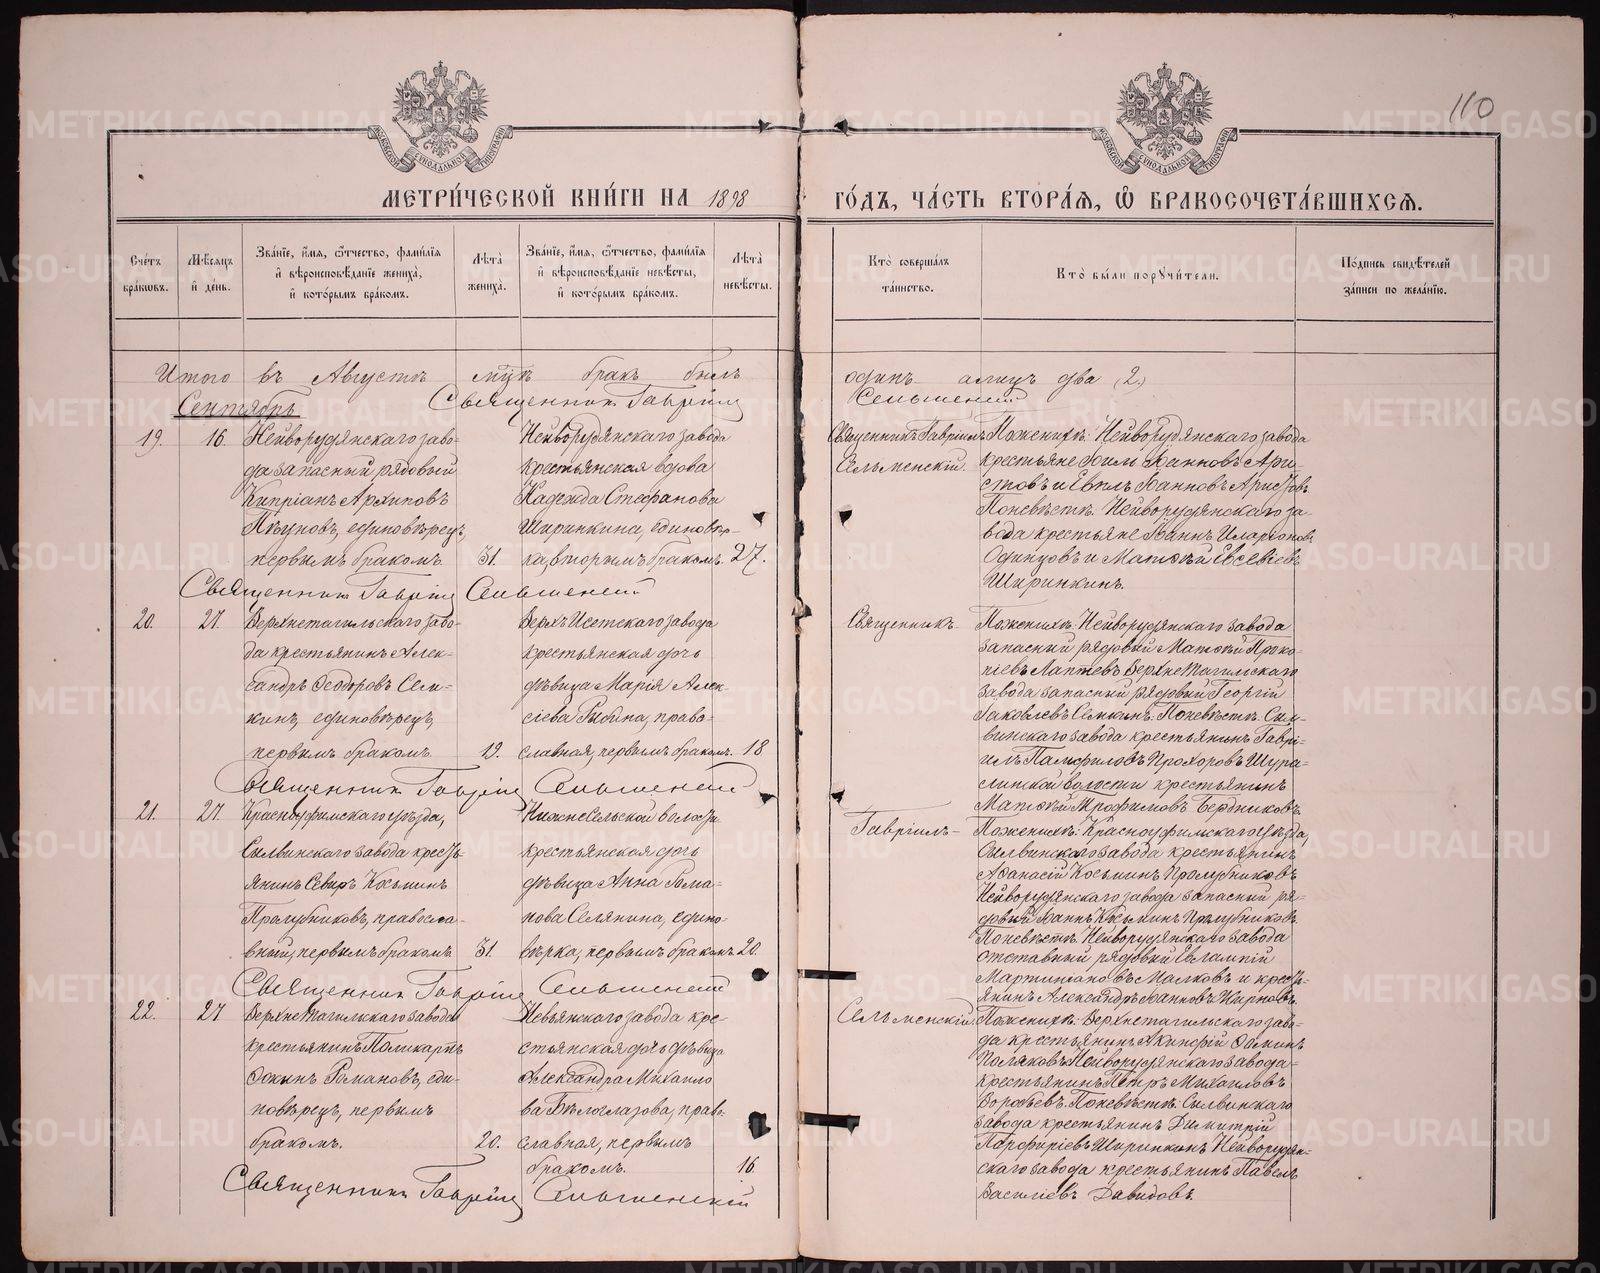 110
МЕТРИ́ЧЕСКОЙ КНИ́ГИ НА 1898
ГО́ДЪ, ЧА́СТЬ ВТОРА́Я, Ѽ БРАКОСОЧЕТА́ВШИХСЯ.
Сче́тъ бра́ковъ.
Мѣ́сяцъ и́ де́нь.
Зва́нїе, и́мя, ѻ́тчество, фами́лїя и́ вѣроисповѣ́данїе жениха̀, и́ кото́рымъ бра́комъ.
Лѣ́та жениха̀.
Зва́нїе, и́мя, ѻ́тчество, фами́лїя и́ вѣроисповѣ́данїе невѣ́сты, и́ кото́рымъ бра́комъ.
Лѣ́та невѣ́сты.
Кто̀ соверша́лъ та́инство.
Кто̀ бы́ли порꙋчи́тели.
По́дпись свидѣ́телей за́писи по жела́нїю.
Итого въ Августѣ м͠цѣ бракъ былъ
одинъ а лицъ два (2.)
Священникъ Гавріилъ
Сельменскій
Сентябрь
19. 16. Нейворудянскаго заво-
да запасный рядовый
Кипріанъ Архиповъ
Пѣуновъ, единовѣрецъ,
первымъ бракомъ. 31.
Нейворудянскаго завода
крестьянская вдова
Надежда Стефанова
Ширинкина, единовѣр-
ка, вторымъ бракомъ. 27.
Священникъ Гавріилъ
Сельменскій.
По женихѣ: Нейворудянскаго завода
крестьяне Филъ Іоанновъ Ари-
стовъ и Евплъ Іоанновъ Аристовъ
По невѣстѣ: Нейворудянскаго за-
вода крестьяне Іоаннъ Иларіоновъ
Одинцовъ и Матѳій Евсевіевъ
Ширинкинъ.
Священникъ Гавріилъ Сельменскій
20. 27. Верхнетагильскаго заво-
да крестьянинъ Алек-
сандръ Ѳеодоровъ Сем-
кинъ, единовѣрецъ,
первымъ бракомъ. 19.
Верхъ Исетскаго завода
крестьянская дочь
дѣвица Марія Алек-
сіева Рыбина, право-
славная, первымъ бракомъ. 18
Священникъ
По женихѣ: Нейворудянскаго завода
запасный рядовый Матѳій Проко-
піевъ Лаптевъ Верхнетагильскаго
завода запасный рядовый Георгій
Іаковлевъ Семкинъ. По невѣстѣ: Сыл-
винскаго завода крестьянинъ Гаврі-
илъ Памфиловъ Прохоровъ Шура-
линской волости крестьянинъ
Матѳій Трофимовъ Бердниковъ.
Священникъ Гавріилъ Сельменскій
21. 27. Красноуфимскаго уѣзда,
Сылвинскаго завода кресть-
янинъ Северъ Косьминъ
Пролубниковъ, правосла-
вный, первымъ бракомъ 31.
Нижне Сельской волости
крестьянская дочь
дѣвица Анна Рома-
нова Селянина, едино-
вѣрка, первымъ бракомъ. 20.
Гавріилъ
По женихѣ: Красноуфимскаго уѣзда,
Сылвинскаго завода крестьянинъ
Аѳанасій Косьминъ Пролубниковъ
Нейворудянскаго завода запасный ря-
довый Іоаннъ Косьминъ Пролубниковъ.
По невѣстѣ: Нейворудянскаго завода
отставный рядовый Евлампій
Мартиніановъ Малковъ и кресть-
янинъ Александръ Іоанновъ Жирновъ.
Священникъ Гавріилъ Сельменскій
22. 27 Верхнетагильскаго завода
крестьянинъ Поликарпъ
Ѳокинъ Романовъ, еди-
новѣрецъ, первымъ
бракомъ. 20.
Невьянскаго завода кре-
стьянская дочь дѣвица
Александра Михайло
ва Бѣлоглазова, право-
славная, первымъ
бракомъ. 16.
Сельменскій
По женихѣ: Верхнетагильскаго заво-
да крестьянинъ Акинфій Ѳоминъ
Поляковъ Нейворудянскаго завода
крестьянинъ Петръ Михаиловъ
Воробьевъ. По невѣстѣ: Сылвинскаго
завода крестьянинъ Димитрій
Порфиріевъ Ширинкинъ Нейворудян-
скаго завода крестьянинъ Павелъ
Василіевъ Давидовъ.
Священникъ Гавріилъ Сельменскій
METRIKI.GASO-URAL.RU